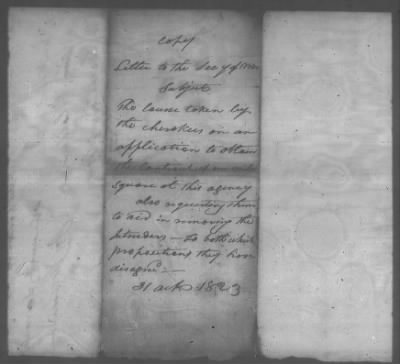 copy
Letter to the Secy of War
Subject
The course taken by
the cherokees on an
application to obtain
the control of one mile
square at this agency
also requesting them
to aid in removing the
Intruders — to both which
propositions they have
disagree :—
31 1823